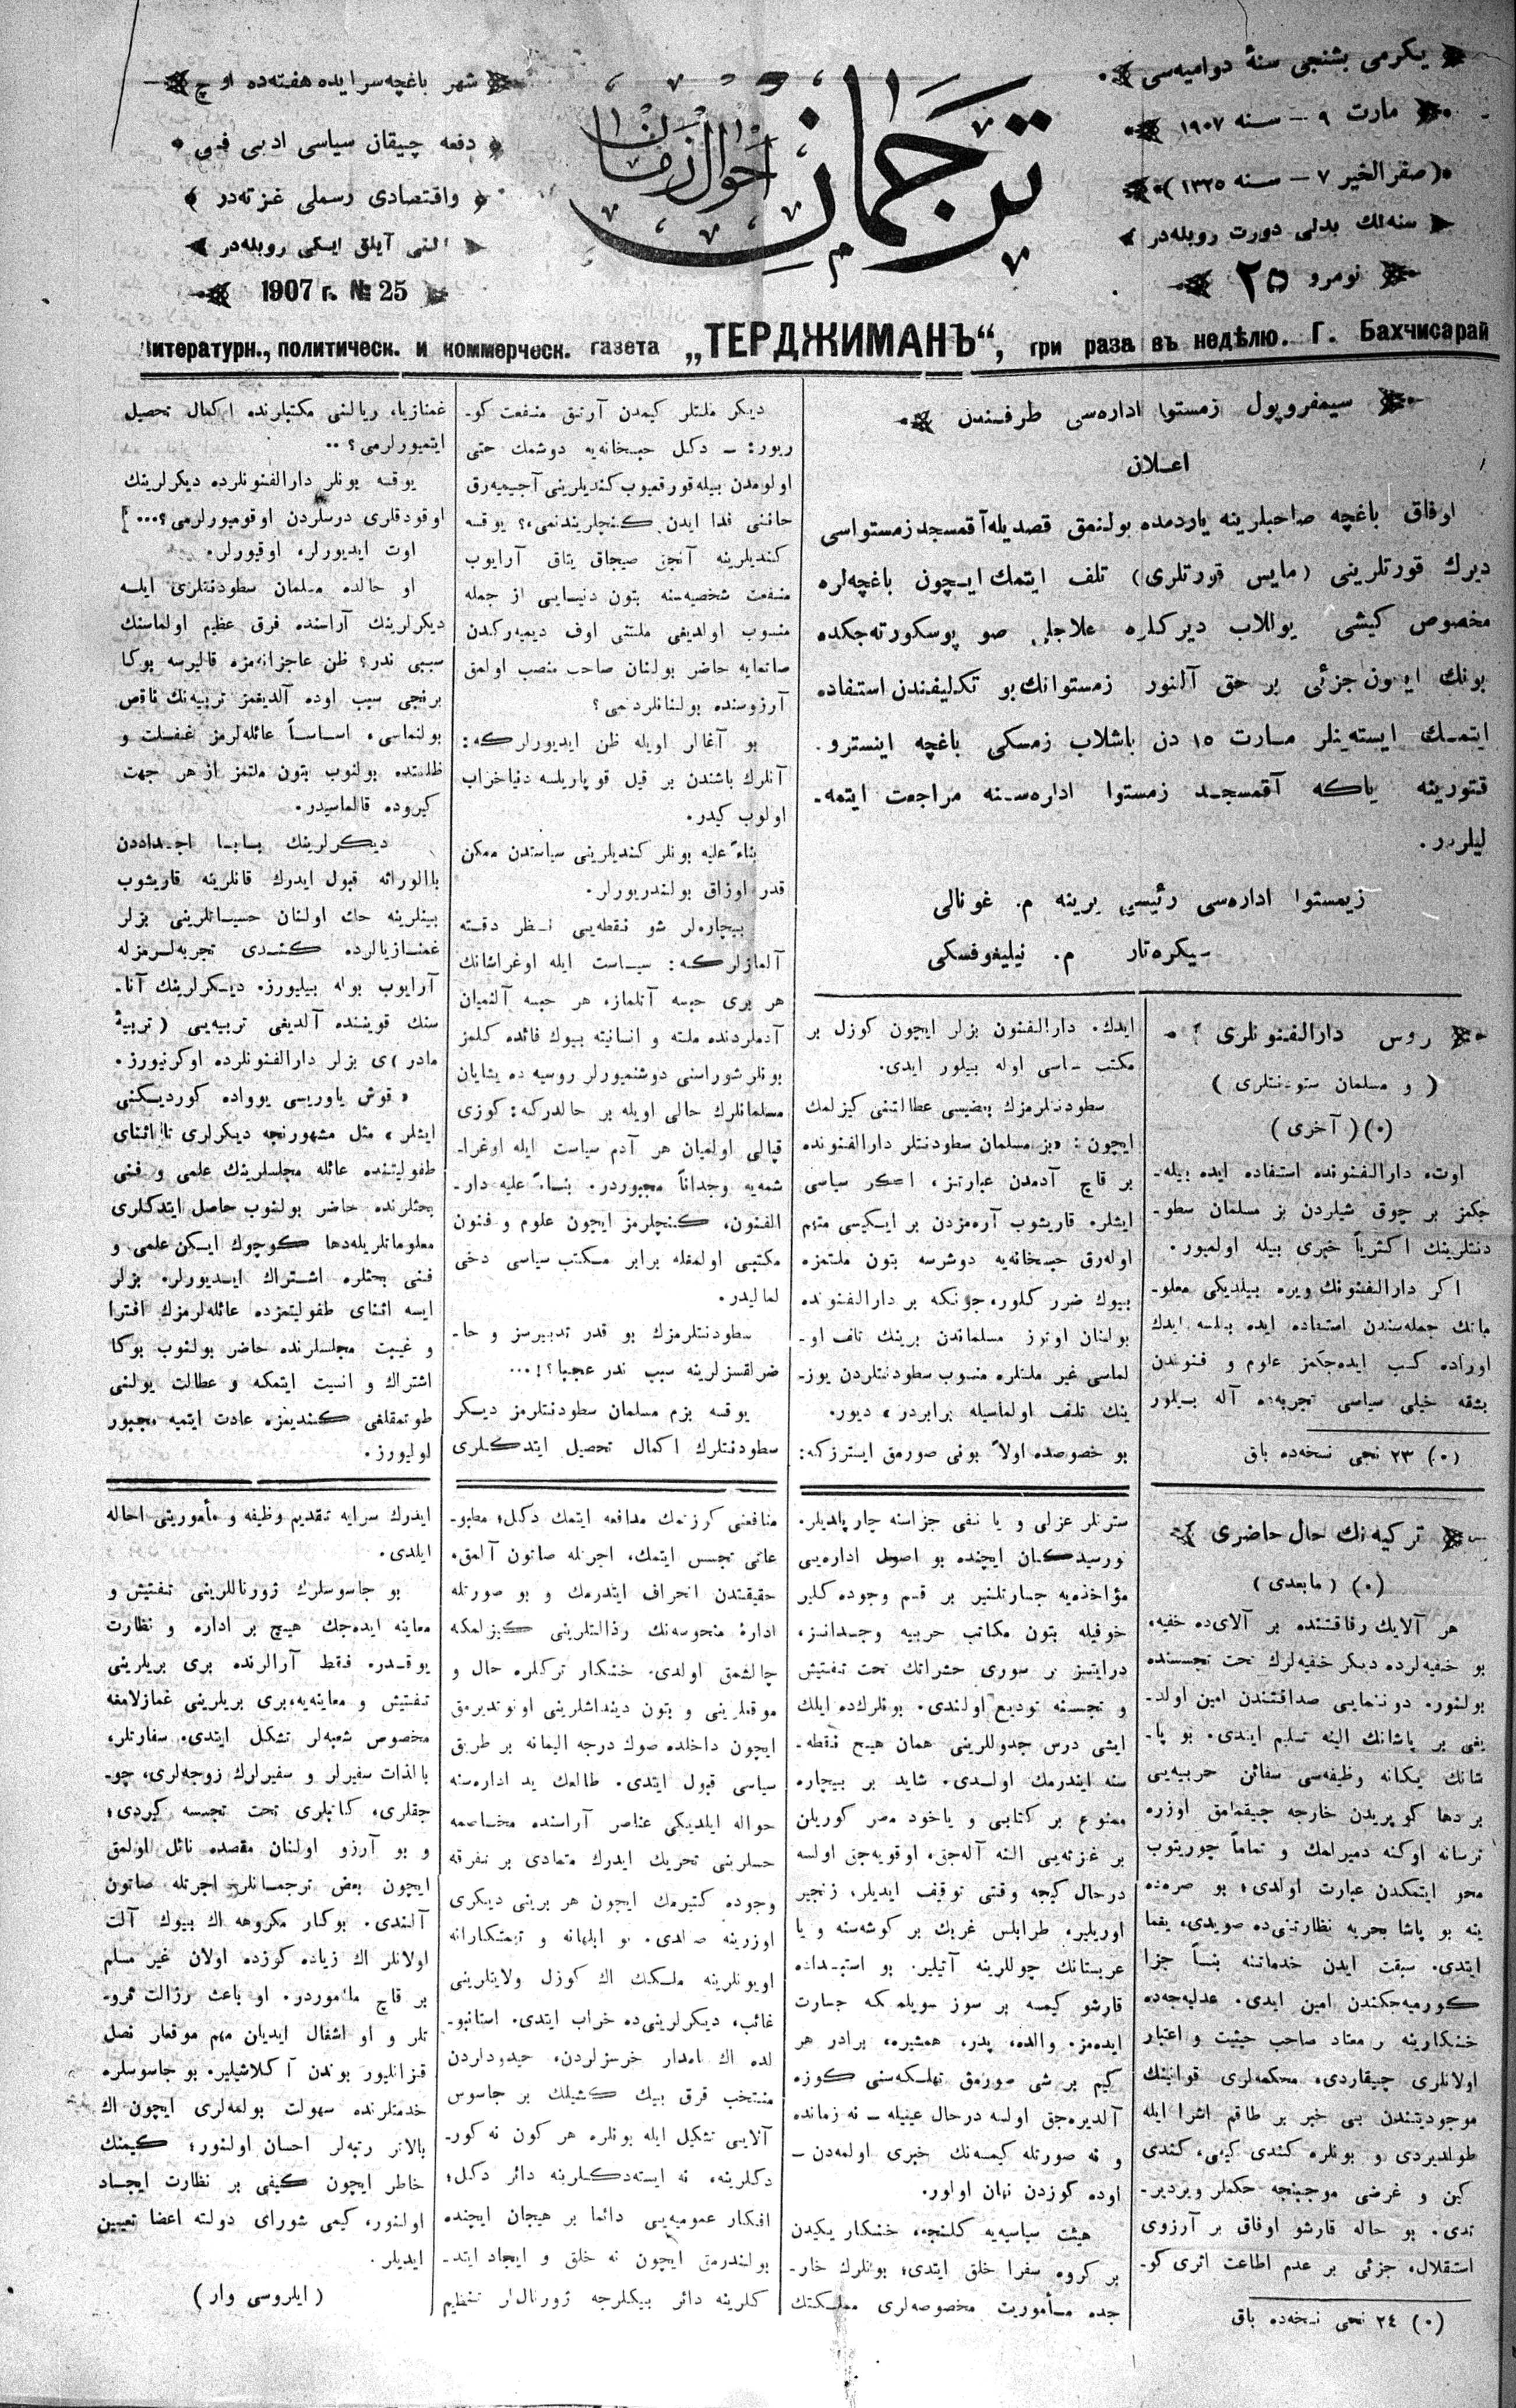 يكرمى بشنجى سنۀ دواميه‌سى
مارت ٩ — سنه ١٩٠٧
(صفر الخير ٧ — سنه ١٣٢٥)
سنه‌لك بدلى دورت روبله‌در
نومرو ٢٥
ترجمان احوال زمان
شهر باغچه‌سرايده هفته‌ده اوچ
دفعه چيقان سياسى ادبى فنى
واقتصادى رسملى غزته‌در
التى آيلق ايكى روبله‌در
1907 г. № 25
Литературн., политическ. и коммерческ. газета „ТЕРДЖИМАНЪ“, три раза въ недѣлю. Г. Бахчисарай
سيمفروپول زمستوا اداره‌سى طرفندن
اعلان
اوفاق باغچه صاحبلرينه ياردمده بولنمق قصديله آقمسجد زمستواسى
ديرك قورتلرينى (مايس قورتلرى) تلف ايتمك ايچون باغچه‌لره
مخصوص كيشى يوللاب ديركلره علاجلى صو پوسكورته‌جكده
بونك ايچون جزئى بر حق آلنور زمستوانك بو تكليفندن استفاده
ايتمك ايسته‌ينلر مارت ١٥ دن باشلاب زمسكى باغچه اينسترو-
قتورينه ياكه آقمسجد زمستوا اداره‌سنه مراجعت ايتمه-
ليلردر.
زيمستوا اداره‌سى رئيسى يرينه م. غونالى
سيكره‌تار م. نيليغوفسكى
روس دارالفنونلرى
(و مسلمان ستودنتلرى)
(٠) (آخرى)
اوت، دارالفنونده استفاده ايده بيله-
جكمز بر چوق شيلردن بز مسلمان سطو-
دنتلرينك اكثرياً خبرى بيله اولميور.
اكر دارالفنونك ويره بيلديكى معلو-
ماتك جمله‌سندن استفاده ايده بيلسه ايدك
اوراده كسب ايده‌جكمز علوم و فنوندن
بشقه خيلى سياسى تجربه‌ده آله بيلور
(٠) ٢٣ نجى نسخه‌ده باق
ايدك. دارالفنون بزلر ايچون كوزل بر
مكتب سياسى اوله بيلور ايدى.
سطودنتلرمزك بعضيسى عطالتنى كيزلمك
ايچون: «بز مسلمان سطودنتلر دارالفنونده
بر قاچ آدمدن عبارتز، اكر سياسى
ايشلره قاريشوب آره‌مزدن بر ايكيسى متهم
اوله‌رق حبسخانه‌يه دوشرسه بتون ملتمزه
بيوك ضرر كلور، چونكه بر دارالفنونده
بولنان اوتوز مسلماندن برينك تلف او-
لماسى غير ملتلره منسوب سطودنتلردن يوز-
ينك تلف اولماسيله برابردر» ديور.
بو خصوصده اولاً بونى صورمق ايسترزكه:
ديكر ملتلر كيمدن آرتيق منفعت كو-
ريور: — دكل حبسخانه‌يه دوشمك حتى
اولومدن بيله قورقميوب كنديلرينى آجيميه‌رق
جاننى فدا ايدن كنجلريندنمى؟ يوقسه
كنديلرينه آنجق صيجاق يتاق آرايوب
منفعت شخصيه‌سنه بتون دنيايى از جمله
منسوب اولديغى ملتنى اوف ديميه‌ركدن
صاتمايه حاضر بولنان صاحب منصب اولمق
آرزوسنده بولنانلردنمى؟
بو آغالر اويله ظن ايديورلركه:
آنلرك باشندن بر قيل قوپاريلسه دنيا خراب
اولوب كيدر.
بناءً عليه بونلر كنديلرينى سياستدن ممكن
قدر اوزاق بولندريورلر.
بيچاره‌لر شو نقطه‌يى نظر دقته
آلمازلركه: سياست ايله اوغراشانك
هر برى حبسه آتلماز، هر حبسه آلنميان
آدملردنده ملته و انسانيته بيوك فائده كلمز
بونلر شوراسنى دوشنميورلر روسيه ده يشايان
مسلمانلرك حالى اويله بر حالدركه: كوزى
قپالى اولميان هر آدم سياست ايله اوغرا-
شمه‌يه وجداناً مجبوردر. بناءً عليه دار-
الفنون، كنجلرمز ايچون علوم و فنون
مكتبى اولمغله برابر مكتب سياسى دخى
لماليدر.
سطودنتلرمزك بو قدر تدبيرسز و حا-
ضرلقسزلرينه سبب ندر عجبا؟!...
يوقسه بزم مسلمان سطودنتلرمز ديكر
سطودنتلرك اكمال تحصيل ايتدكلرى
غمنازيا، ريالنى مكتبلرنده اكمال تحصيل
ايتميورلرمى؟..
يوقسه بونلر دارالفنونلرده ديكرلرينك
اوقودقلرى درسلردن اوقوميورلرمى؟...
اوت ايديورلر، اوقيورلر.
او حالده مسلمان سطودنتلرى ايله
ديكرلرينك آراسنده فرق عظيم اولماسنك
سببى ندر؟ ظن عاجزانه‌مزه قاليرسه بوكا
برنجى سبب اوده آلديغمز تربيه‌نك ناقص
بولنماسى، اساساً عائله‌لرمز غفلت و
ظلمتده بولنوب بتون ملتمز از هر جهت
كيروده قالماسيدر.
ديكرلرينك بابا اجداددن
بالوراثه قبول ايدرك قانلرينه قاريشوب
بينلرينه حك اولنان حسياتلرينى بزلر
غمنازيالرده كندى تجربه‌لرمزله
آرايوب بوله بيليورز. ديكرلرينك آنا-
سنك قويننده آلديغى تربيه‌يى (تربيۀ
مادر)ى بزلر دارالفنونلرده اوكرنيورز.
«قوش ياوريسى يوواده كورديكنى
ايشلر» مثل مشهورنجه ديكرلرى تا اثناى
طفوليتنده عائله مجلسلرينك علمى و فنى
بحثلرنده حاضر بولنوب حاصل ايتدكلرى
معلوماتلريله‌دها كوچوك ايكن علمى و
فنى بحثلره اشتراك ايديورلر. بزلر
ايسه اثناى طفوليتمزده عائله‌لرمزك افترا
و غيبت مجلسلرنده حاضر بولنوب بوكا
اشتراك و انسيت ايتمكه و عطالت يولنى
طوتمقلغى كنديمزه عادت ايتميه مجبور
اوليورز.
تركيه‌نك حال حاضرى
(٠) (مابعدى)
هر آلايك رفاقتنده بر آلاى‌ده خفيه،
بو خفيه‌لرده ديكر خفيه‌لرك تحت تجسسنده
بولنور. دوننمايى صداقتندن امين اولد-
يغى بر پاشانك الينه تسليم ايتدى. بو پا-
شانك يكانه وظيفه‌سى سفائن حربيه‌يى
بر دها كوپريدن خارجه چيقمامق اوزره
ترسانه اوكنه دميرلمك و تماماً چوريتوب
محو ايتمكدن عبارت اولدى؛ بو صره‌ده
ينه بو پاشا بحريه نظارتنى‌ده صويدى، يغما
ايتدى. سبقت ايدن خدماتنه بناً جزا
كورميه‌جكندن امين ايدى. عدليه‌جه‌ده
خنكارينه معتاد صاحب حيثيت و اعتبار
اولانلرى چيقاردى، محكمه‌لرى قوانينك
موجوديتندن بى خبر بر طاقم اشرا ايله
طولديردى و بونلره كندى كيفى، كندى
كين و غرضى موجبنجه حكملر ويردير-
تدى. بو حاله قارشو اوفاق بر آرزوى
استقلال، جزئى بر عدم اطاعت اثرى كو-
(٠) ٢٤ نجى نسخه‌ده باق
سترنلر عزلى و يا نفى جزاسنه چارپلديلر.
نورسيدكان ايچنده بو اصول اداره‌يى
مؤاخذه‌يه جسارتلنير بر قسم وجوده كلير
خوفيله بتون مكاتب حربيه وجدانسز،
درايتسز بر سورى حشراتك تحت تفتيش
و تجسسنه توديع اولندى. بونلرك‌ده ايلك
ايشى درس جدوللرينى همان هيچ نقطه-
سنه ايندرمك اولدى. شايد بر بيچاره
ممنوع بر كتابى و ياخود مضر كوريلن
بر غزته‌يى الته آله‌جق، اوقويه‌جق اولسه
درحال كيجه وقتى توقيف ايديلر، زنجير
اوريلير، طرابلس غربك بر كوشه‌سنه و يا
عربستانك چوللرينه آتيلير. بو استبداده
قارشو كيمسه بر سوز سويلمكه جسارت
ايده‌مز. والده، پدر، همشيره، برادر هر
كيم بر شى صورمق تهلكه‌سنى كوزه
آلديره‌جق اولسه درحال عينيله — نه زمانده
و نه صورتله كيمسه‌نك خبرى اولمه‌دن —
اوده كوزدن نهان اولور.
هيئت سياسيه‌يه كلنجه، خنكار يكيدن
بر كروه سفرا خلق ايتدى؛ بونلرك خار-
جده مأموريت مخصوصه‌لرى مملكتك
منافعنى كوزتمك مدافعه ايتمك دكل؛ مطبو-
عاتى تجسس ايتمك، اجرتله صاتون آلمق،
حقيقتدن انحراف ايتدرمك و بو صورتله
ادارۀ منحوسه‌نك رذالتلرينى كيزلمكه
چالشمق اولدى. خنكار تركلره حال و
موقعلرينى و بتون دينداشلرينى اونوتديرمق
ايچون داخلده صوك درجه اليمانه بر طريق
سياسى قبول ايتدى. طالعك يد اداره‌سنه
حواله ايلديكى عناصر آراسنده مخاصمه
حسلرينى تحريك ايدرك متمادى بر تفرقه
وجوده كتيرمك ايچون هر برينى ديكرى
اوزرينه صالدى. بو ابلهانه و تهتكارانه
اويونلرينه ملكك اك كوزل ولايتلرينى
غائب، ديكرلرينى‌ده خراب ايتدى. استانبو-
لده اك نامدار خرسزلردن، حيدودلردن
منتخب قرق بيك كشيلك بر جاسوس
آلايى تشكيل ايله بونلره هر كون نه كور-
دكلرينه، نه ايشتدكلرينه دائر دكل؛
افكار عموميه‌يى دائما بر هيجان ايچنده
بولندرمق ايچون نه خلق و ايجاد ايتد-
كلرينه دائر بيكلرجه ژورناللر تنظيم
ايدرك سرايه تقديم وظيفه و مأموريتى احاله
ايلدى.
بو جاسوسلرك ژورناللرينى تفتيش و
معاينه ايده‌جك هيچ بر اداره و نظارت
يوقدر. فقط آرالرنده برى بريلرينى
تفتيش و معاينه‌يه، برى بريلرينى غمازلامغه
مخصوص شعبه‌لر تشكل ايتدى. سفارتلر،
بالذات سفيرلر و سفيرلرك زوجه‌لرى، چو-
جقلرى، كاتبلرى تحت تجسسه كيردى؛
و بو آرزو اولنان مقصده نائل اولمق
ايچون بعض ترجمانلر اجرتله صاتون
آلندى. بو كار مكروهه اك بيوك آلت
اولانلر اك زياده كوزده اولان غير مسلم
بر قاچ مأموردر. او باعث رزالت ثرو-
تلر و او اشغال ايديان مهم موقعلر نصل
قزانليور بوندن آكلاشيلير. بو جاسوسلره
خدمتلرنده سهولت بولمه‌لرى ايچون اك
بالاتر رتبه‌لر احسان اولنور؛ كيمنك
خاطر ايچون كيفى بر نظارت ايجاد
اولنور، كيمى شوراى دولته اعضا تعيين
ايديلر.
(ايلروسى وار)